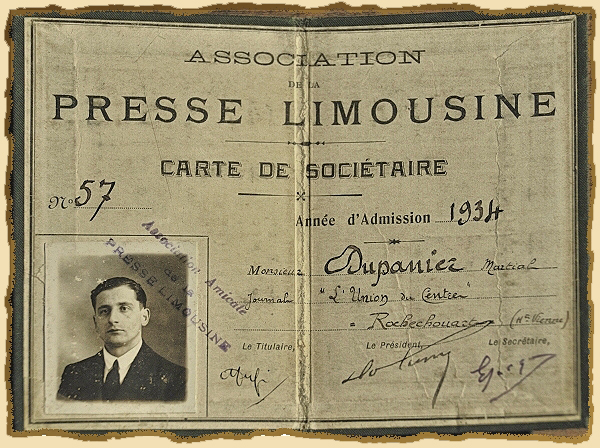 ASSOCIATION
DE LA
PRESSE LIMOUSINE
CARTE DE SOCIÉTAIRE
No 57
Année d'Admission 1934
Association Amicale
de la
PRESSE LIMOUSINE
Monsieur Dupanier Martial
Journal "L'Union du Centre"
Rochechouart (Hte Vienne)
Le Titulaire, Le Président, Le Secrétaire,